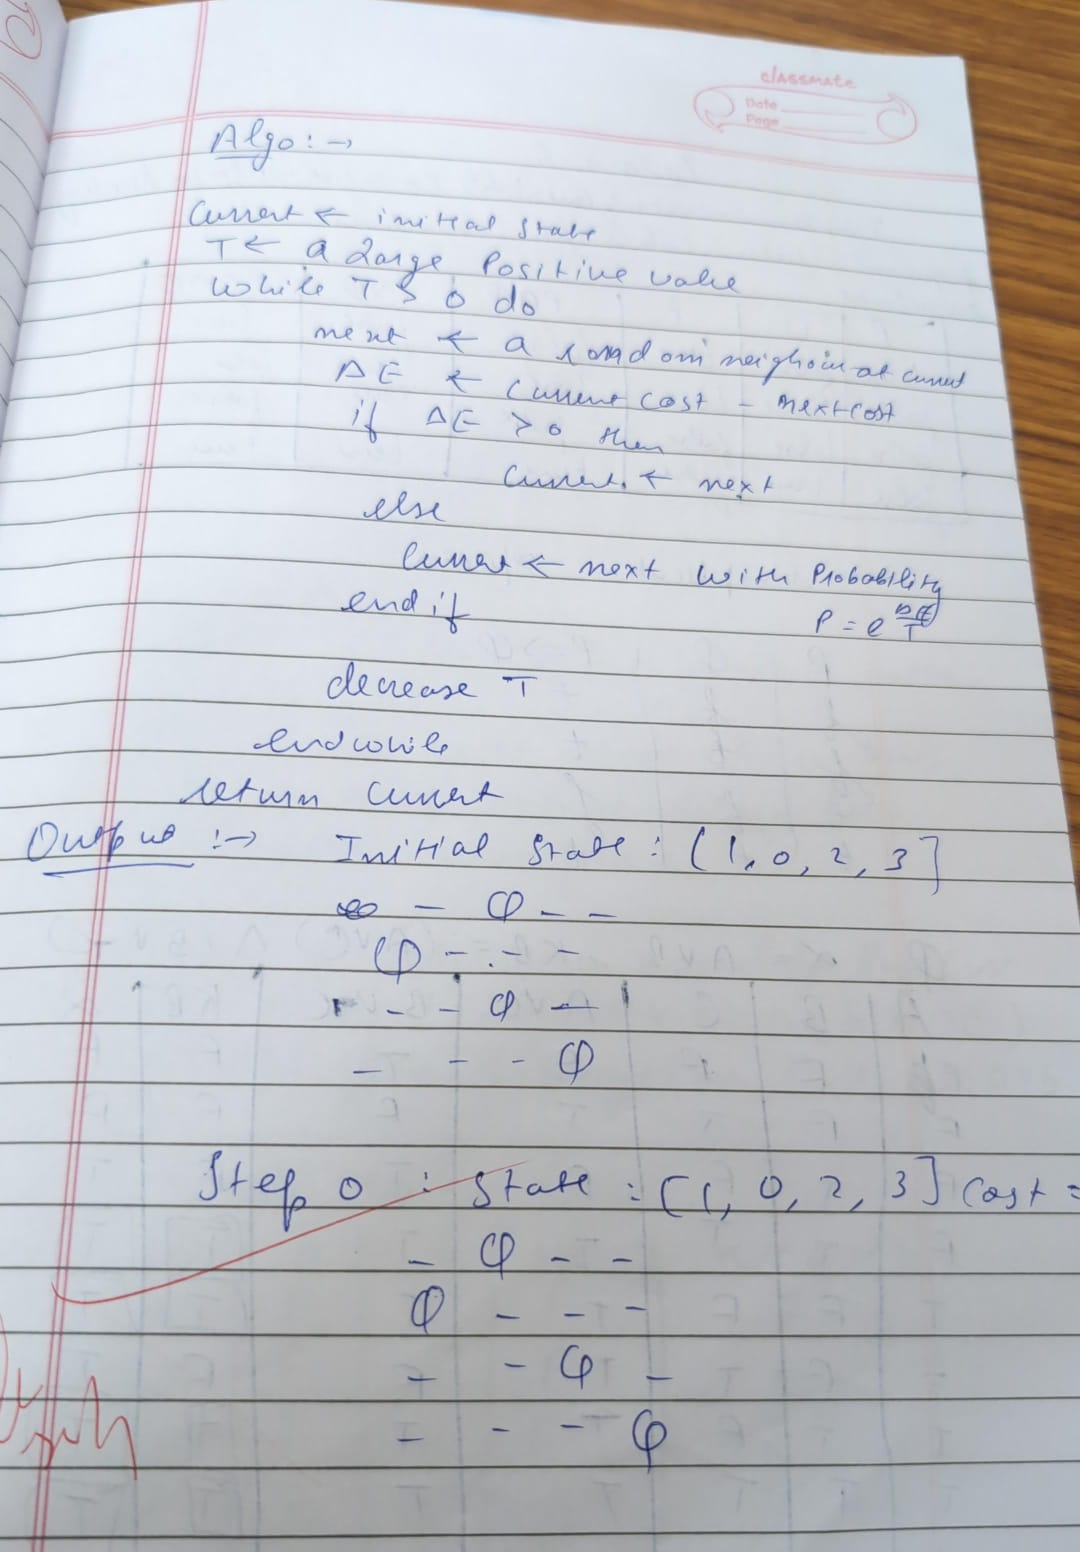 classmate
Date
Page
Algo :→
Current ← initial state
T ← a large positive value
while T > 0 do
next ← a random neighbour of current
ΔE ← current cost - next cost
if ΔE > 0 then
Current ← next
else
Current ← next with Probability
P = e^(ΔE/T)
end if
decrease T
end while
return current
Output :→ Initial State : [1, 0, 2, 3]
- Q - -
Q - - -
- - Q -
- - - Q
Step 0 : State : [1, 0, 2, 3] Cost =
- Q - -
Q - - -
- - Q -
- - - Q